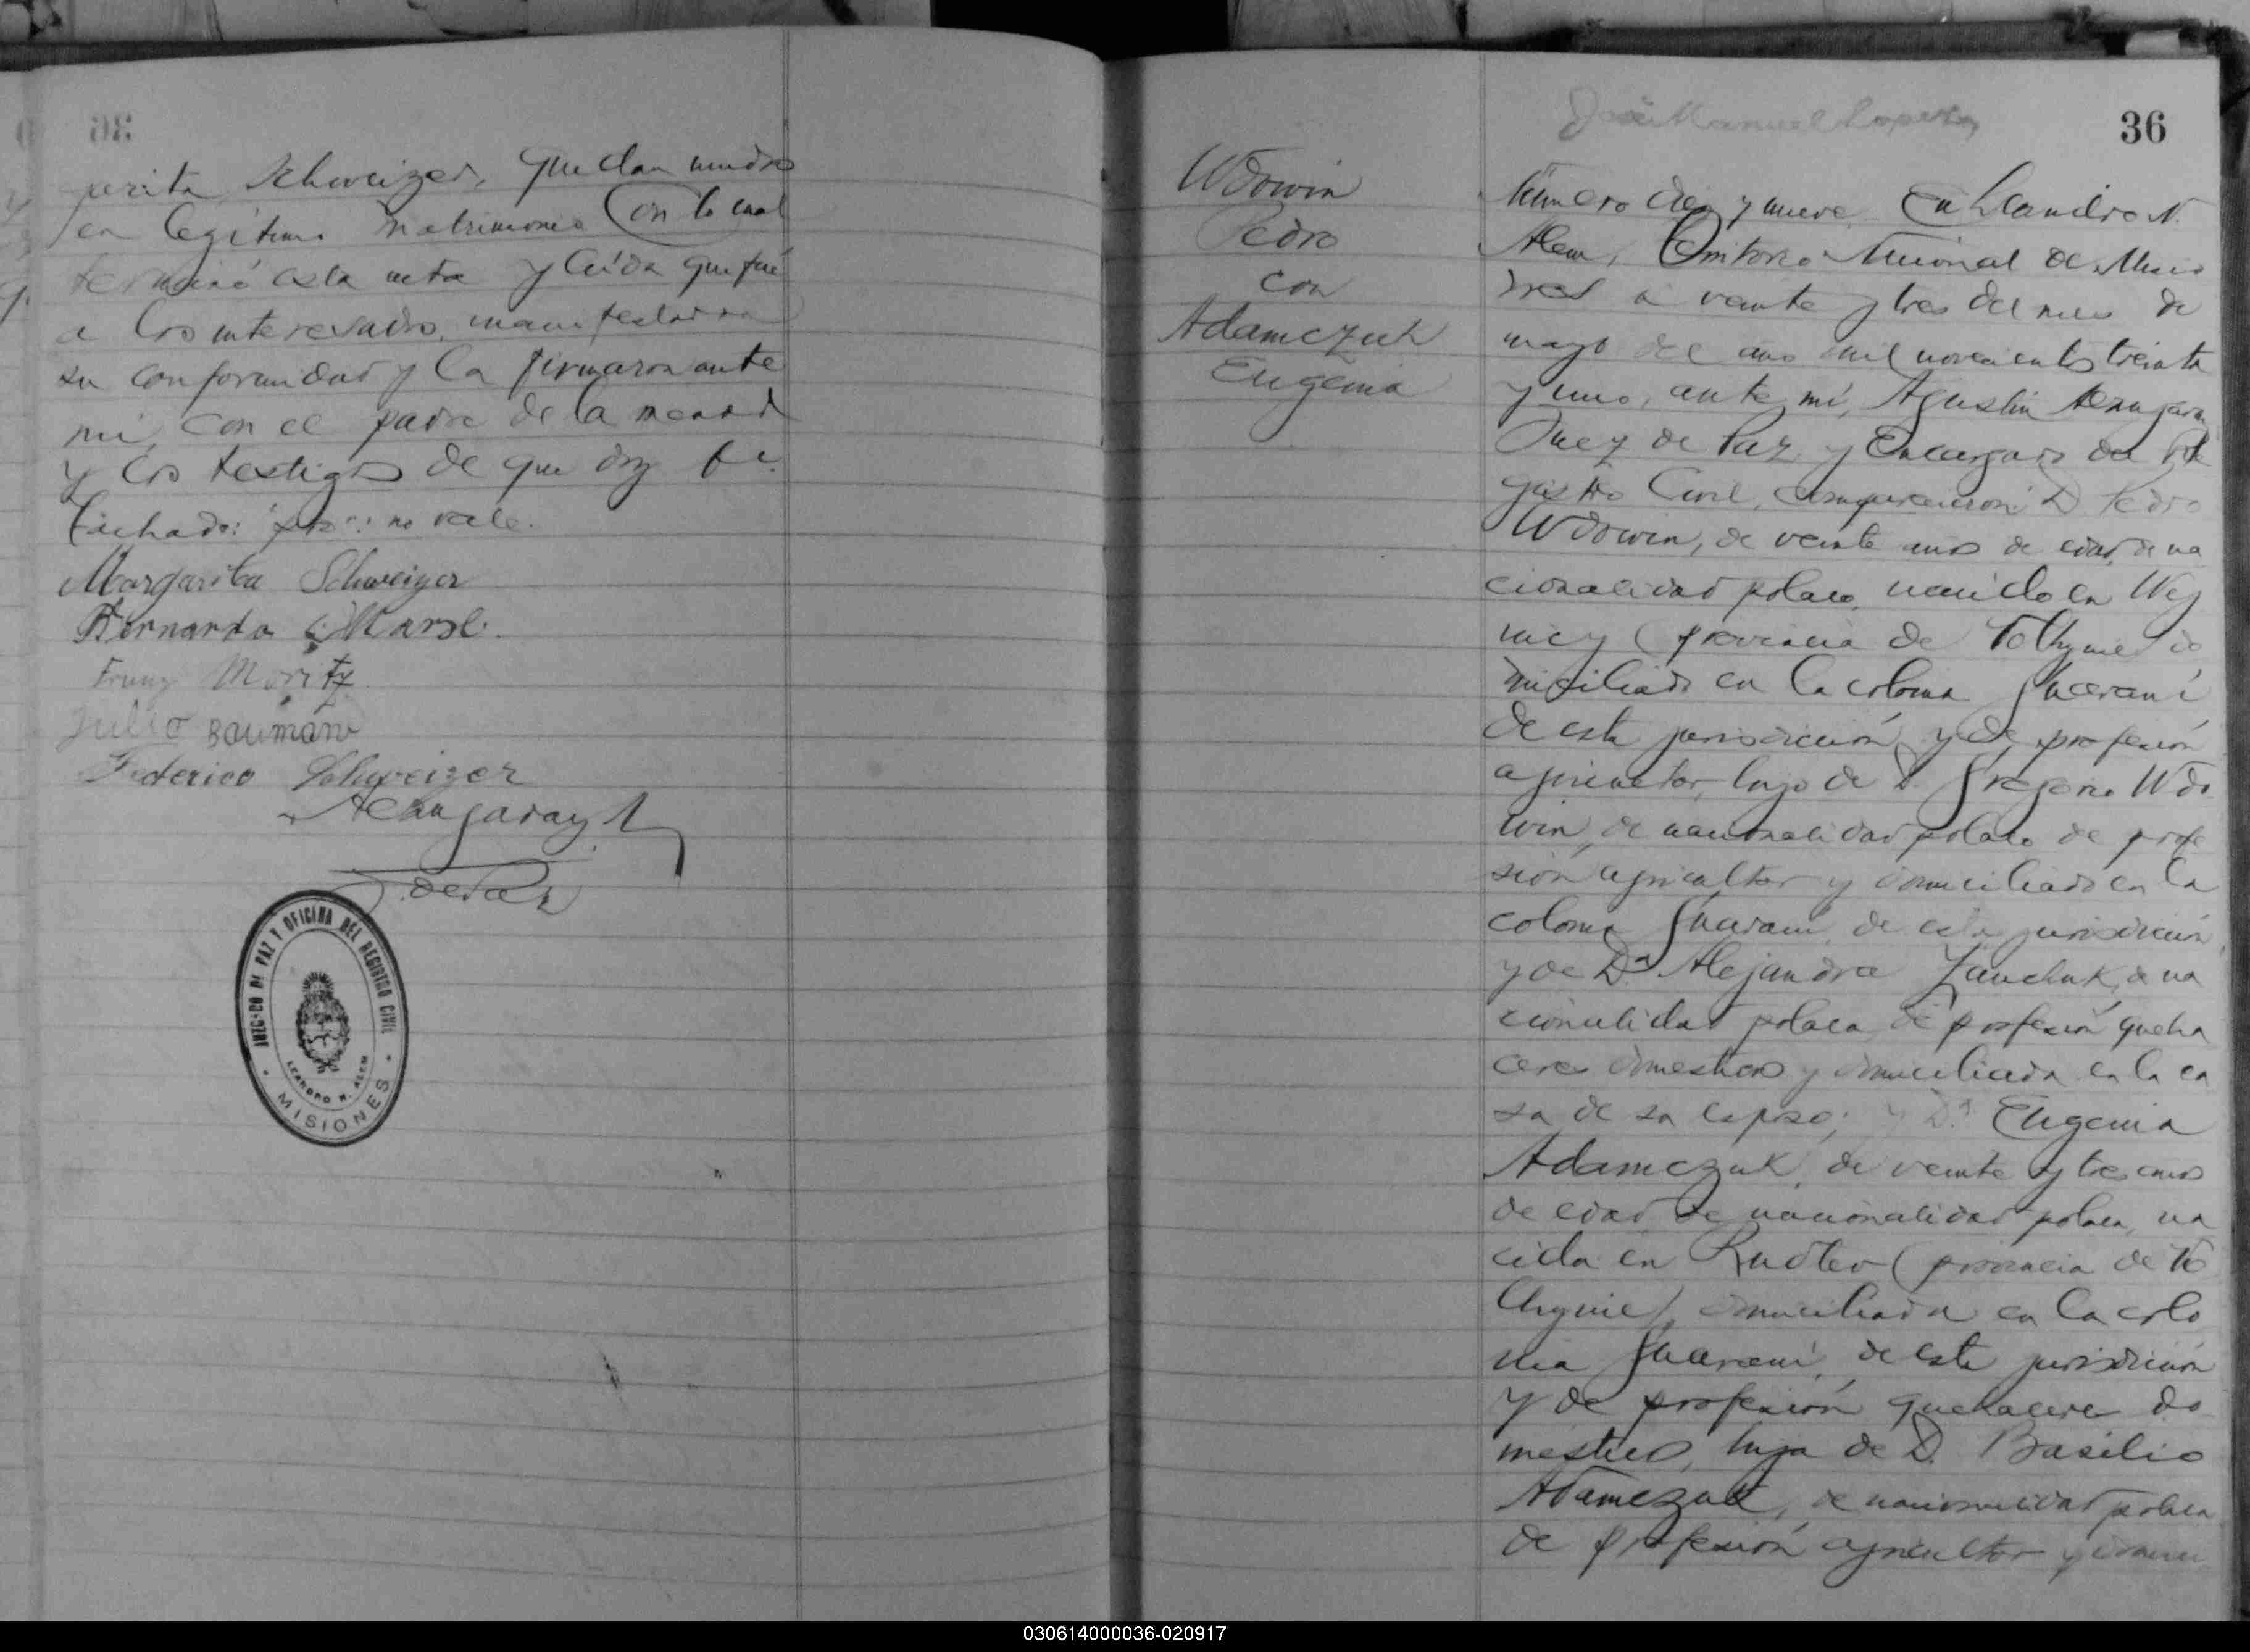 garita Schweizer, quedan unidos
en legítimo matrimonio. Con lo cual
terminó esta acta y leída que fué
a los interesados, manifestaron
su conformidad y la firmaron ante
mí, con el padre de la menor
y los testigos de que doy fe.
Tachado: no vale.
Margarita Schweizer
Bernardo
Franz Moritz
Julio Baumann
Federico Schweizer
J. de Paz
JUZGADO DE PAZ Y OFICINA DEL REGISTRO CIVIL
LEANDRO N. ALEM
MISIONES
36
José Manuel
Wdowin
Pedro
con
Adamczuk
Eugenia
Número diez y nueve. En Leandro N.
Alem, Territorio Nacional de Misio
nes a veinte y tres del mes de
mayo del año mil novecientos treinta
y uno, ante mí, Agustín
Juez de Paz y Encargado del Re
gistro Civil, comparecieron: D. Pedro
Wdowin, de veinte años de edad, de na
cionalidad polaco, nacido en
(provincia de Wolhynie) do
miciliado en la colonia Guaraní
de esta jurisdicción y de profesión
agricultor, hijo de D. Gregorio Wdo
win, de nacionalidad polaco de profe
sión agricultor y domiciliado en la
colonia Guaraní, de esta jurisdicción
y de Da. Alejandra de na
cionalidad polaca de profesión queha
ceres domésticos y domiciliada en la ca
sa de su esposo; y Da. Eugenia
Adamczuk, de veinte y tres años
de edad de nacionalidad polaca, na
cida en (provincia de Wo
lhynie), domiciliada en la colo
nia Guaraní, de esta jurisdicción
y de profesión quehaceres do
mésticos, hija de D. Basilio
Adamczuk, de nacionalidad polaca
de profesión agricultor y domici